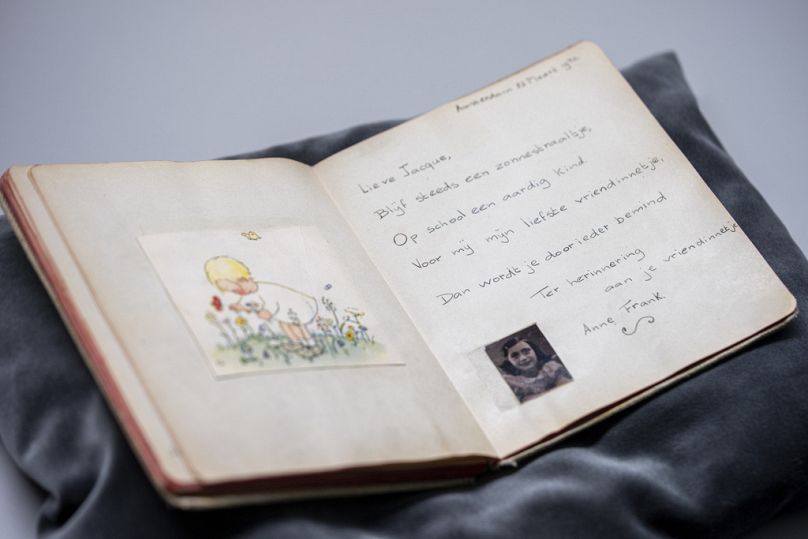 Amsterdam 23 Maart
Lieve Jacque,
Blijf steeds een zonnestraaltje,
Op school een aardig kind
Voor mij mijn liefste vriendinnetje,
Dan wordt je door ieder bemind
Ter herinnering
aan je vriendinnetje
Anne Frank.